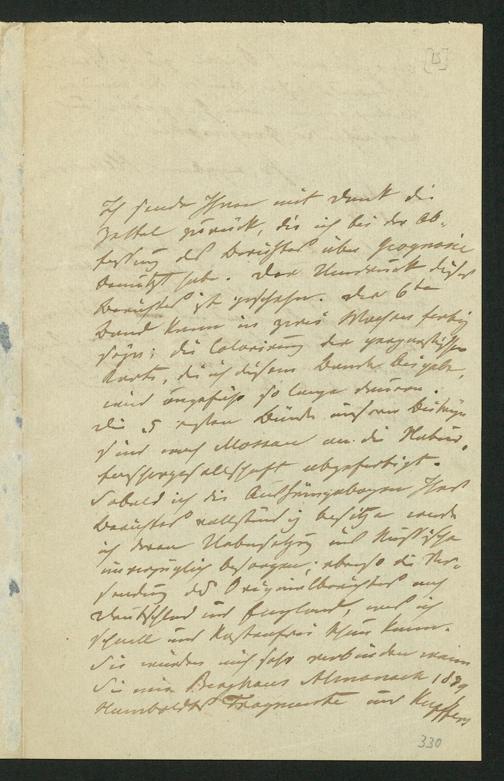 [15]
Ich sende Ihnen mit Dank die
Zettel zurück, die ich bei der Ab-
fassung des Berichtes über Geognosie
benutzt habe. Der Umdruck dieses
Berichtes ist geschehen. Der 6te
Band kann in zwei Wochen fertig
seyn; die Colorirung der geognostischen
Karte, die ich diesem Bande beigebe,
wird ungefähr so lange dauern.
Die 5 ersten Bände unserer Beiträge
sind nach Moscau an die Natur-
forschergesellschaft abgefertigt.
Sobald ich die Aushängebogen Ihres
Berichtes vollständig besitze werde
ich deren Uebersetzung ins Russische
unverzüglich besorgen; ebenso die Ver-
sendung des Originalberichtes nach
Deutschland und England, was ich
schnell und kostenfrei thun kann.
Sie würden mich sehr verbinden wenn
Sie mir Berghaus Almanach 1839
Humboldts Fragmente und Kupffers
330